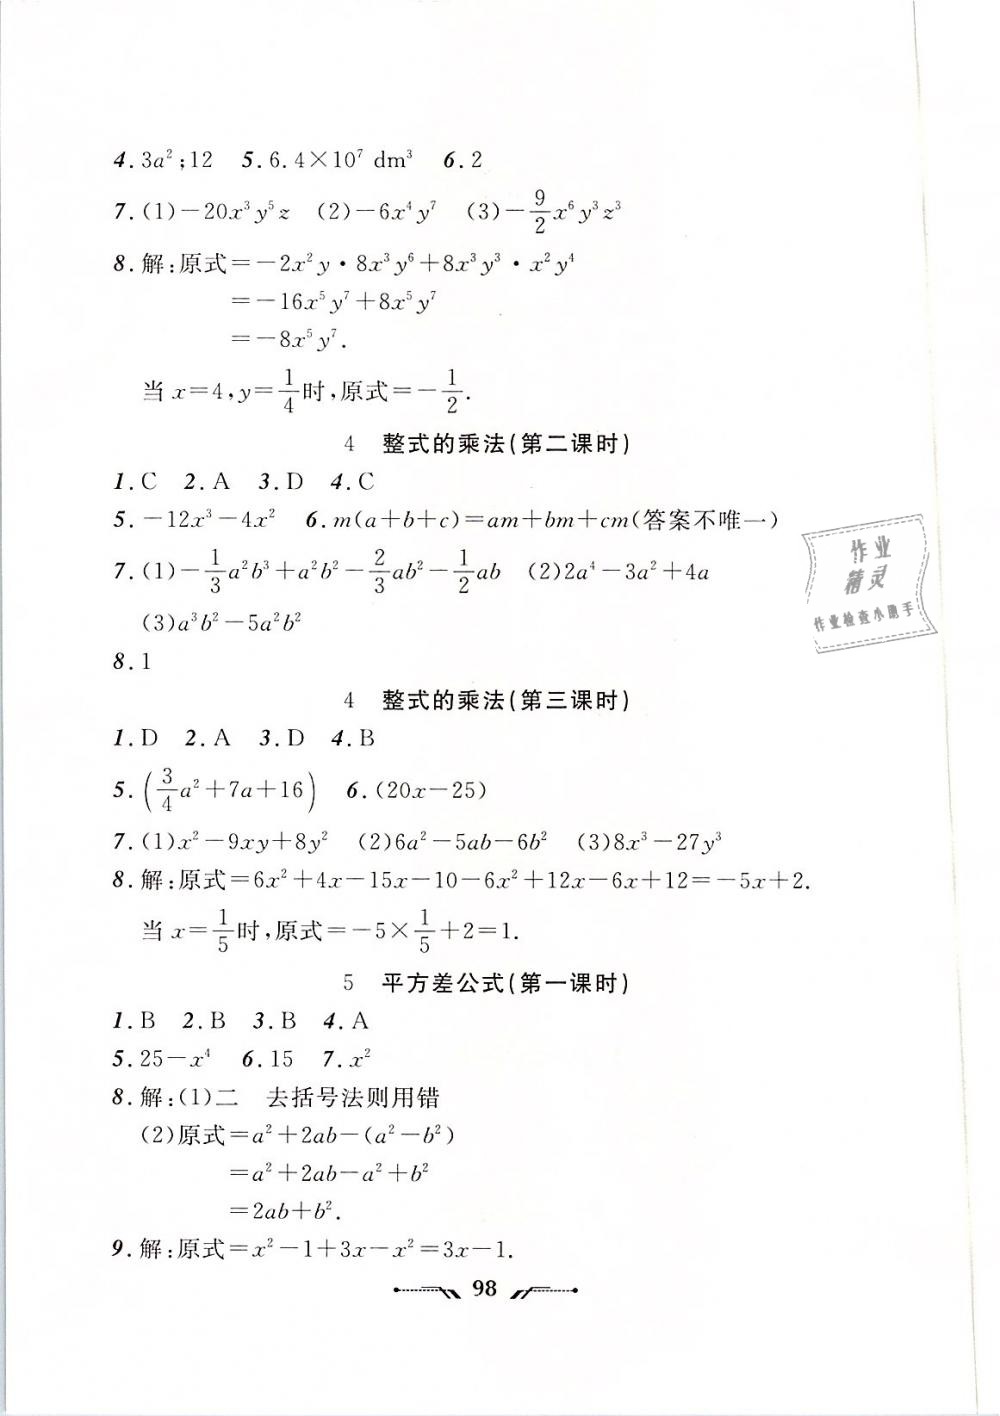 4. 3a²;12　5. 6.4×10⁷ dm³　6. 2
7. (1)－20x³y⁵z　(2)－6x⁴y⁷　(3)－9/2x⁶y³z³
8. 解:原式＝－2x²y·8x³y⁶＋8x³y³·x²y⁴
＝－16x⁵y⁷＋8x⁵y⁷
＝－8x⁵y⁷.
当 x＝4,y＝1/4时,原式＝－1/2.
4　整式的乘法(第二课时)
1. C　2. A　3. D　4. C
5. －12x³－4x²　6. m(a＋b＋c)＝am＋bm＋cm(答案不唯一)
7. (1)－1/3a²b³＋a²b²－2/3ab²－1/2ab　(2)2a⁴－3a²＋4a
(3)a³b²－5a²b²
8. 1
4　整式的乘法(第三课时)
1. D　2. A　3. D　4. B
5. (3/4a²＋7a＋16)　6. (20x－25)
7. (1)x²－9xy＋8y²　(2)6a²－5ab－6b²　(3)8x³－27y³
8. 解:原式＝6x²＋4x－15x－10－6x²＋12x－6x＋12＝－5x＋2.
当 x＝1/5时,原式＝－5×1/5＋2＝1.
5　平方差公式(第一课时)
1. B　2. B　3. B　4. A
5. 25－x⁴　6. 15　7. x²
8. 解:(1)二　去括号法则用错
(2)原式＝a²＋2ab－(a²－b²)
＝a²＋2ab－a²＋b²
＝2ab＋b².
9. 解:原式＝x²－1＋3x－x²＝3x－1.
98
作业
精灵
作业检查小助手